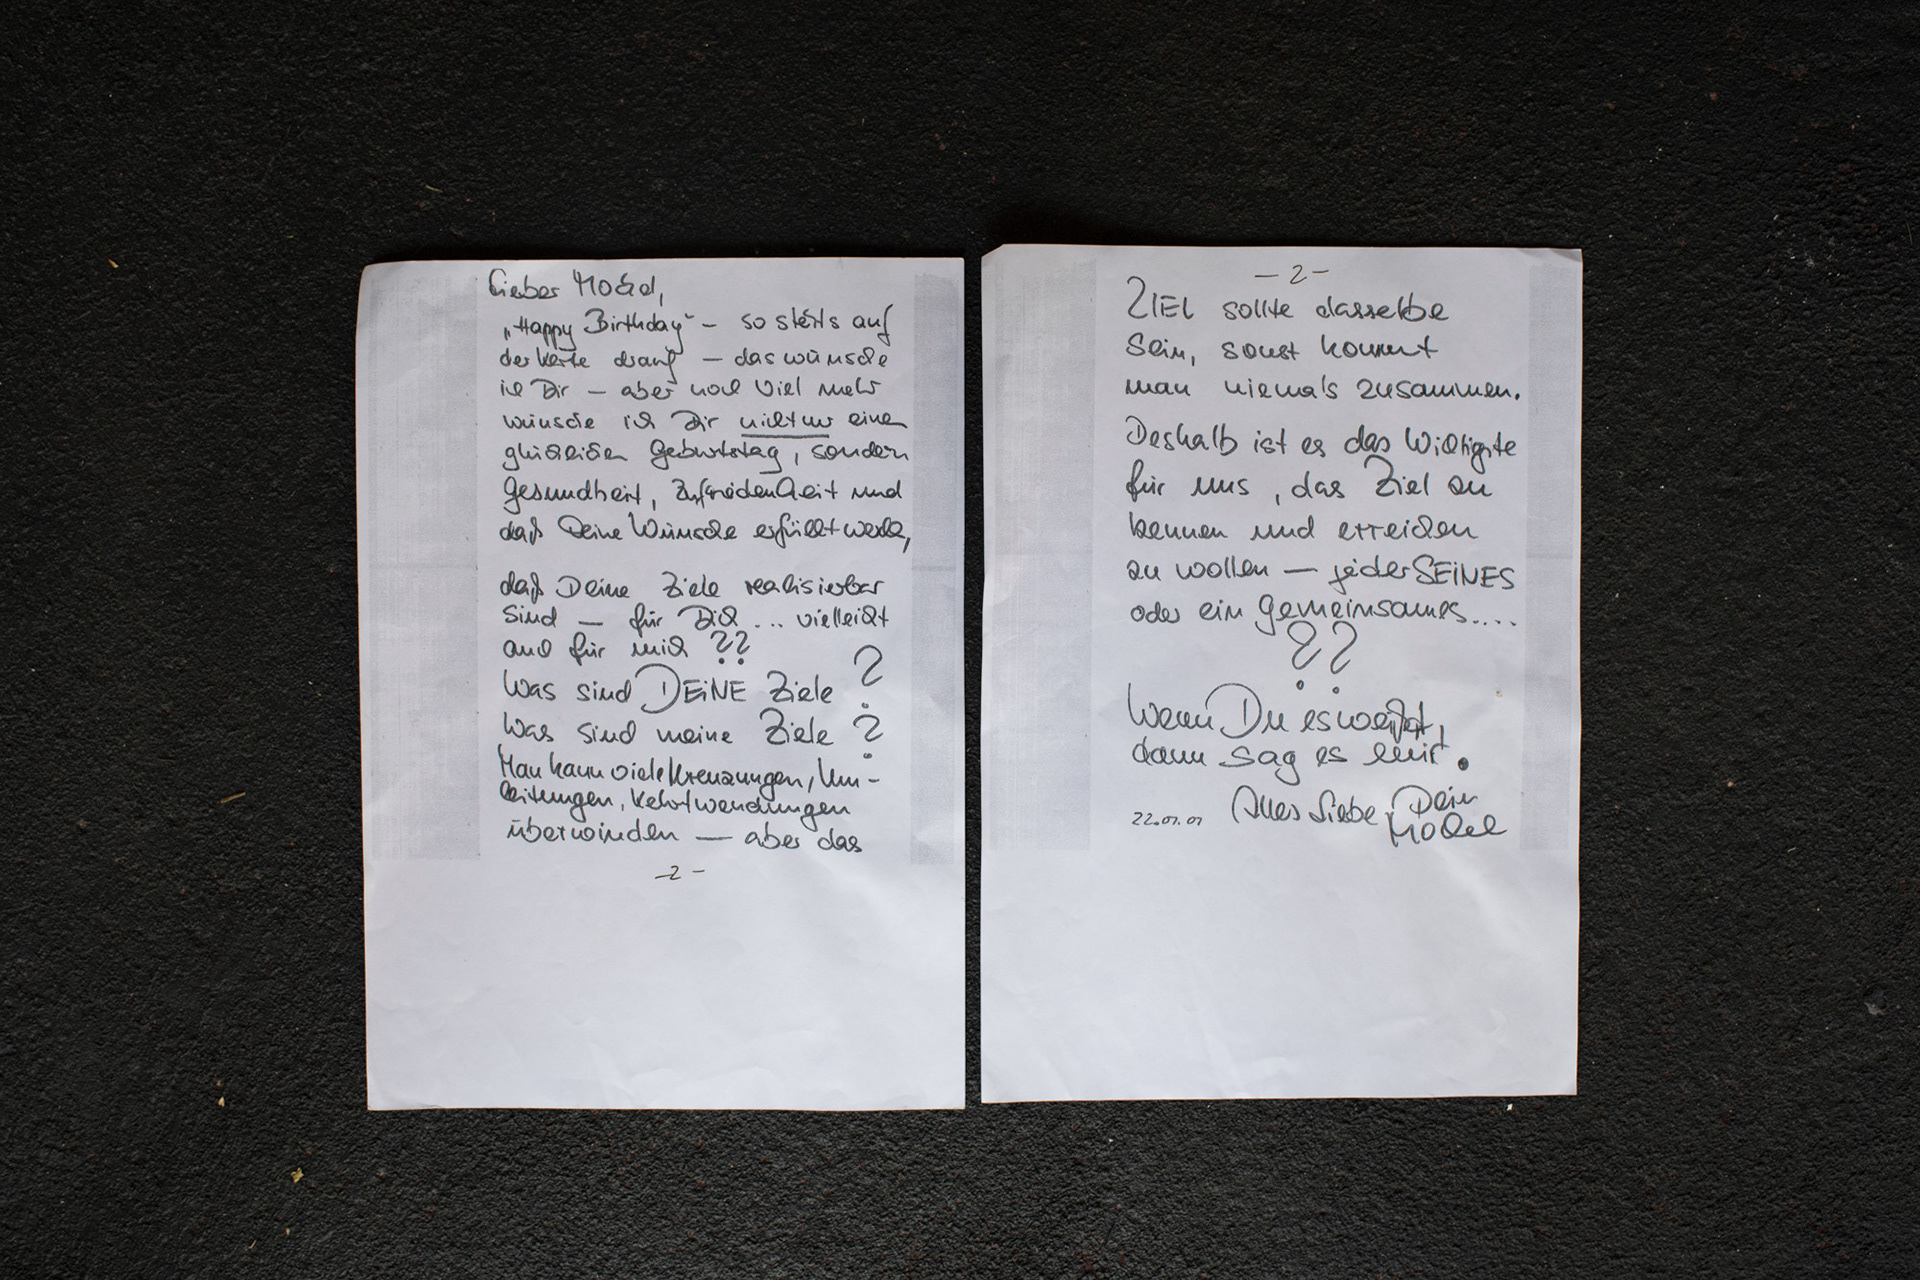 Lieber Mockel,
„Happy Birthday" – so steht's auf
der Karte drauf – das wünsche
ich Dir – aber noch viel mehr
wünsche ich Dir nicht nur einen
glücklichen Geburtstag, sondern
Gesundheit, Zufriedenheit und
daß Deine Wünsche erfüllt werden,
daß Deine Ziele realisierbar
sind – für Dich ... vielleicht
auch für mich ??
Was sind DEINE Ziele ?
Was sind meine Ziele ?
Man kann viele Kreuzungen, Um-
leitungen, Kehrtwendungen
überwinden – aber das
- 2 -
- 2 -
ZIEL sollte dasselbe
sein, sonst kommt
man niemals zusammen.
Deshalb ist es das Wichtigste
für uns, das Ziel zu
kennen und erreichen
zu wollen – jeder SEINES
oder ein gemeinsames....
??
Wenn Du es weißt,
dann sag es mir.
Alles Liebe, Dein
22.01.01